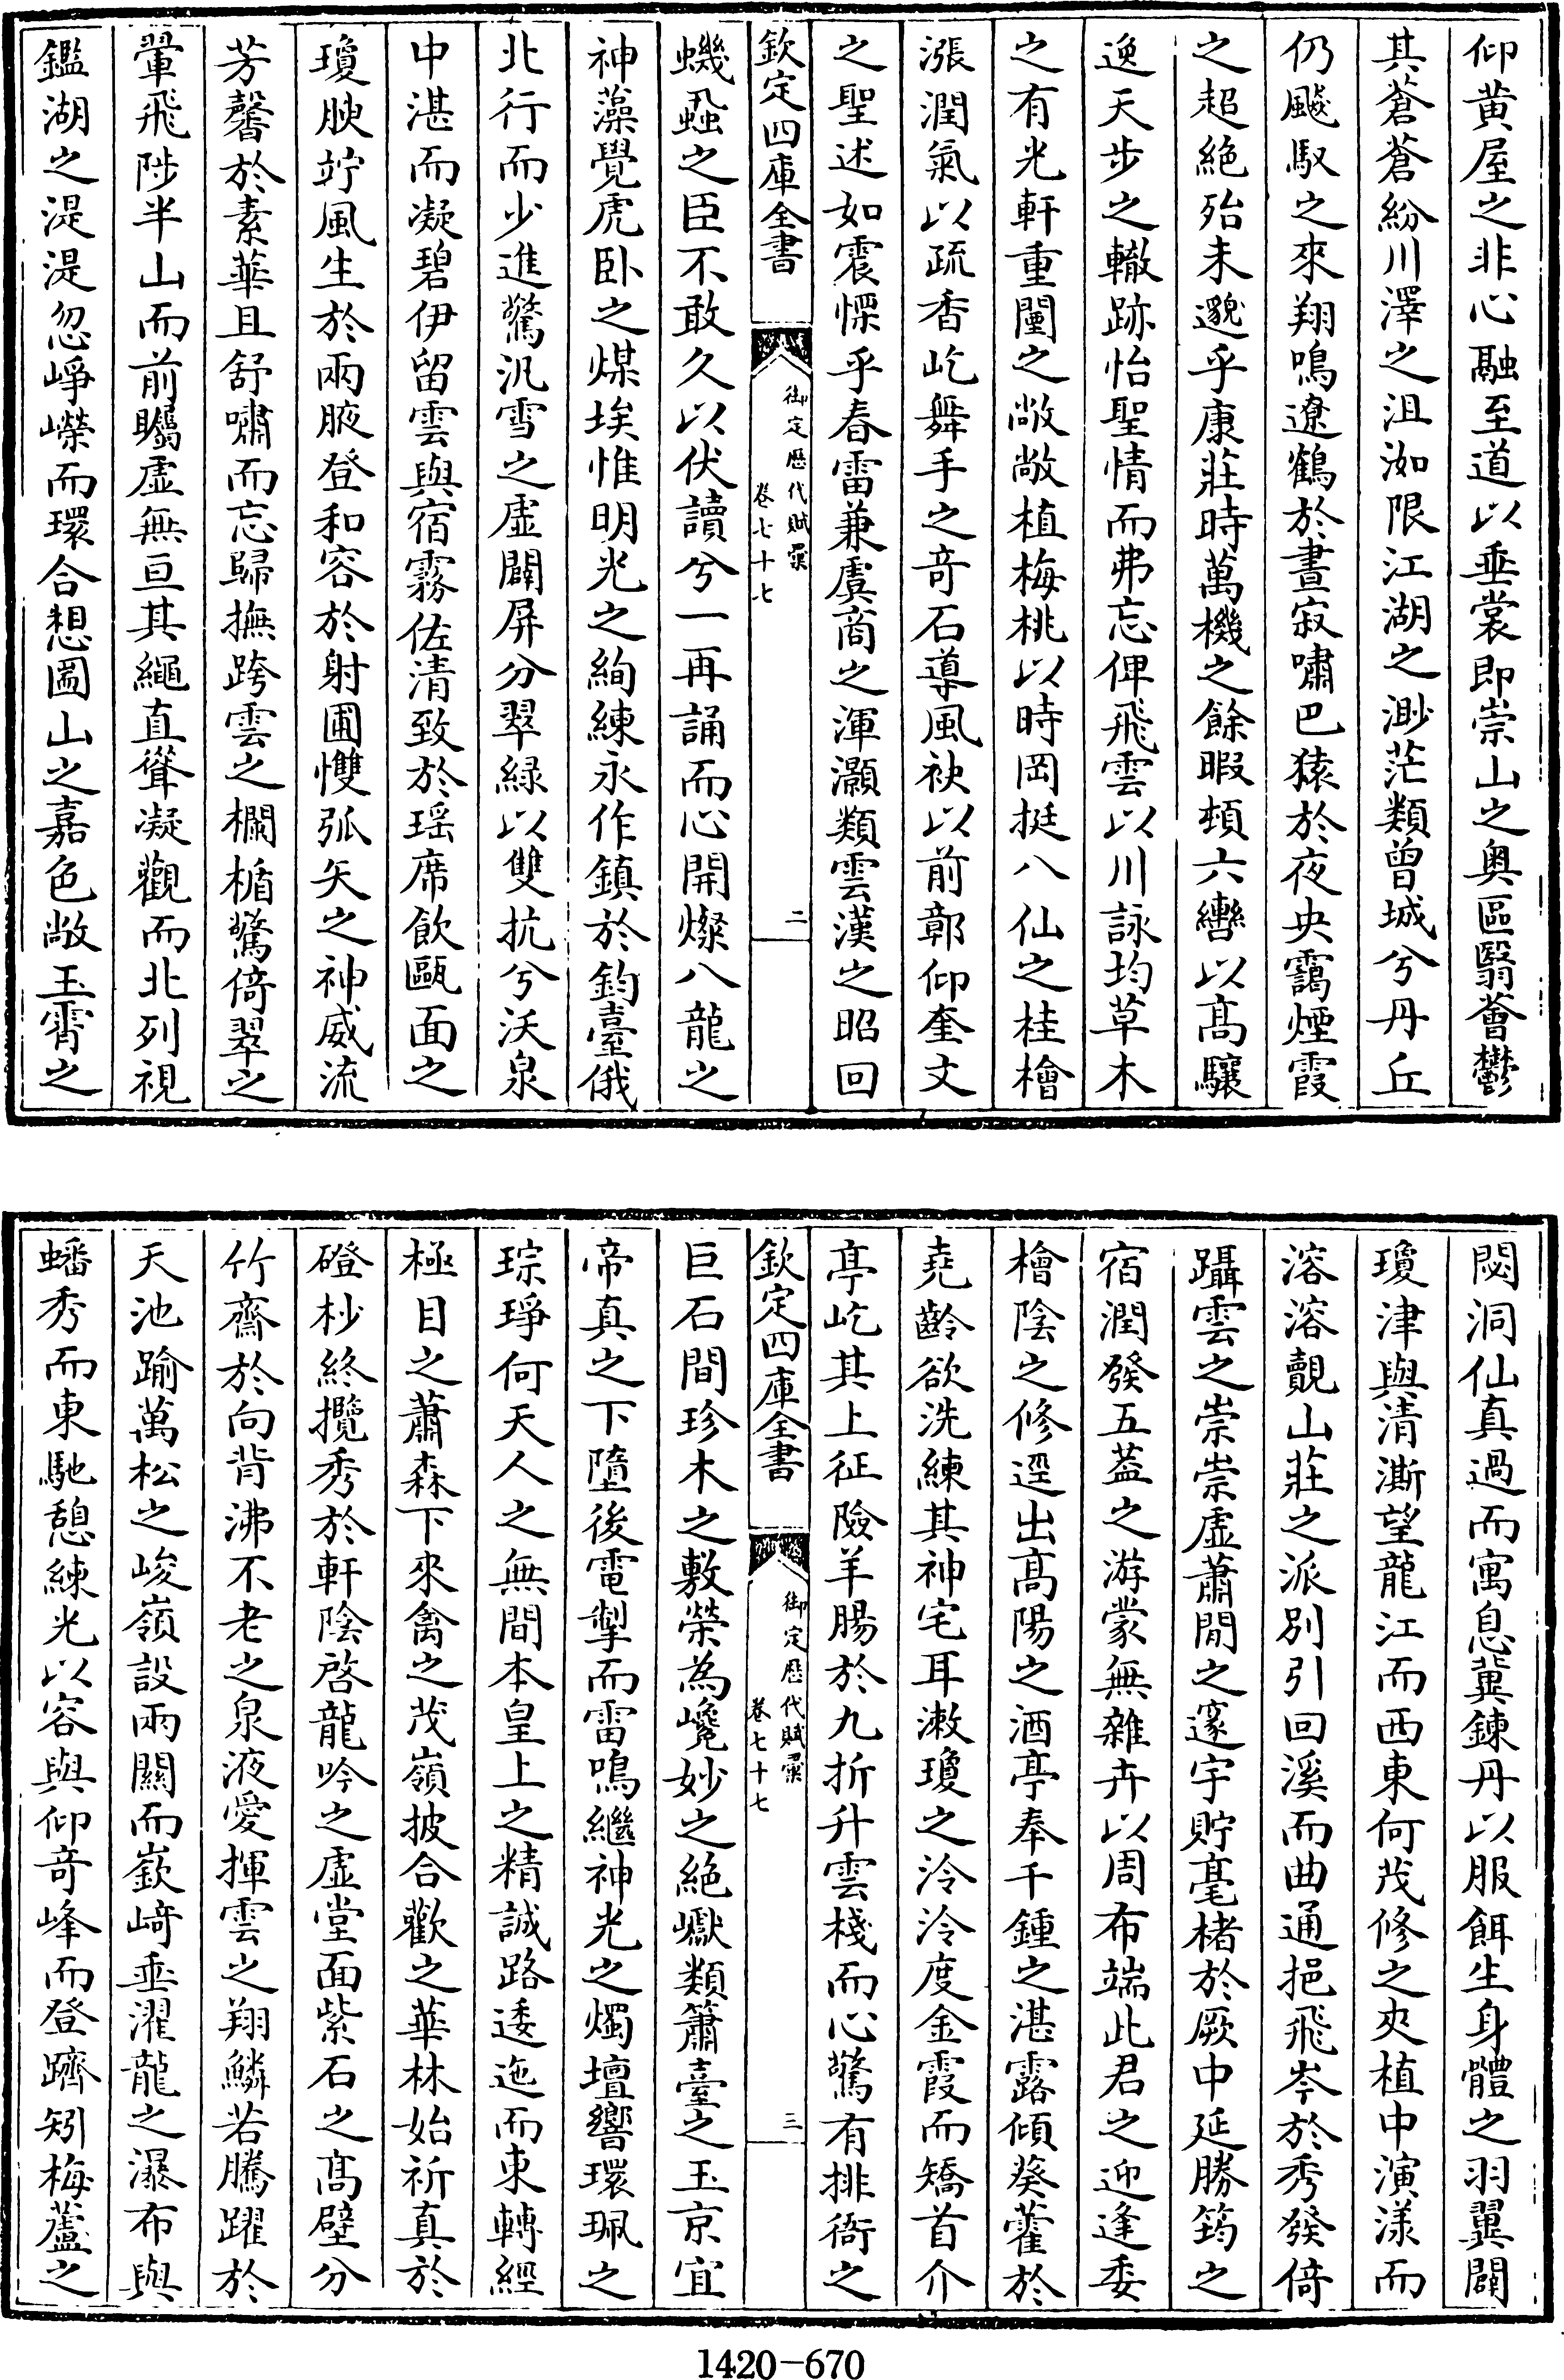 仰黄屋之非心融至道以垂裳即崇山之奥區翳薈鬱
其蒼蒼紛川澤之沮洳限江湖之渺茫類曾城兮丹丘
仍飈馭之來翔鳴遼鶴於晝寂嘯巴猿於夜央靄煙霞
之超絶殆未邈乎康莊時萬機之餘暇頓六轡以髙驤
逸天步之轍跡怡聖情而弗忘俾飛雲以川詠均草木
之有光軒重闥之敞敞植梅桃以時岡挺八仙之桂檜
漲潤氣以疏香屹舞手之竒石導風袂以前彰仰奎文
之聖述如震慄乎春雷兼虞商之渾灝類雲漢之昭回
欽定四庫全書
御定歴代賦彚
卷七十七
二
蟣蝨之臣不敢久以伏讀兮一再誦而心開燦八龍之
神藻覺虎卧之煤埃惟明光之絢練永作鎮於鈞臺俄
北行而少進驚汎雪之虚闢屏分翠緑以雙抗兮沃泉
中湛而凝碧伊留雲與宿霧佐清致於瑶席飲甌面之
瓊腴竚風生於兩腋登和容於射圃慴弧矢之神威流
芳馨於素華且舒嘯而忘歸撫跨雲之欄楯驚倚翠之
翬飛陟半山而前矚虚無亘其繩直聳凝觀而北列視
鑑湖之湜湜忽崢嶸而環合想圖山之嘉色敞玉霄之
閟洞仙真過而寓息冀鍊丹以服餌生身體之羽翼闢
瓊津與清澌望龍江而西東何茂修之夾植中演漾而
溶溶覿山莊之派別引回溪而曲通挹飛岑於秀發倚
躡雲之崇崇虚蕭閒之邃宇貯毫楮於厥中延勝筠之
宿潤發五葢之游蒙無雜卉以周布端此君之迎逢委
檜陰之修逕出髙陽之酒亭奉千鍾之湛露傾葵藿於
堯齡欲洗練其神宅耳漱瓊之泠泠度金霞而矯首介
亭屹其上征險羊腸於九折升雲棧而心驚有排衙之
欽定四庫全書
御定歴代賦彚
卷七十七
三
巨石間珍木之敷榮為巉妙之絶巘類簫臺之玉京宜
帝真之下墮後電掣而雷鳴繼神光之燭壇響環珮之
琮琤何天人之無間本皇上之精誠路逶迤而東轉經
極目之蕭森下來禽之茂嶺披合歡之華林始祈真於
磴杪終攬秀於軒陰啓龍吟之虚堂面紫石之髙壁分
竹齋於向背沸不老之泉液愛揮雲之翔鱗若騰躍於
天池踰萬松之峻嶺設兩關而嶔﨑垂濯龍之瀑布與
蟠秀而東馳憩練光以容與仰竒峰而登躋矧梅蘆之
1420-670